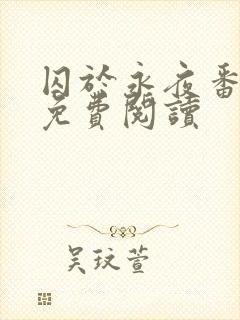 囚於永夜番
免費閱讀
吴玟萱